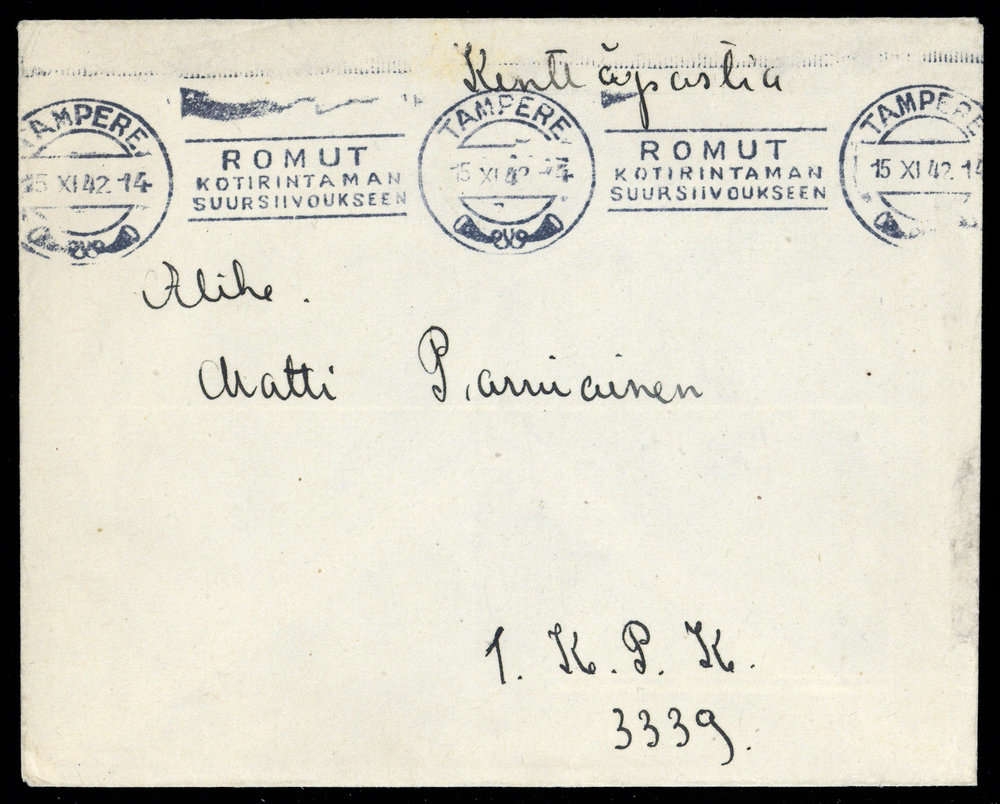 Kenttäpostia
TAMPERE
15 XI 42 -14
ROMUT
KOTIRINTAMAN
SUURSIIVOUKSEEN
TAMPERE
15 XI 42 -14
ROMUT
KOTIRINTAMAN
SUURSIIVOUKSEEN
TAMPERE
15 XI 42 14
Alihe.
Matti
1. K. P. K.
3339.